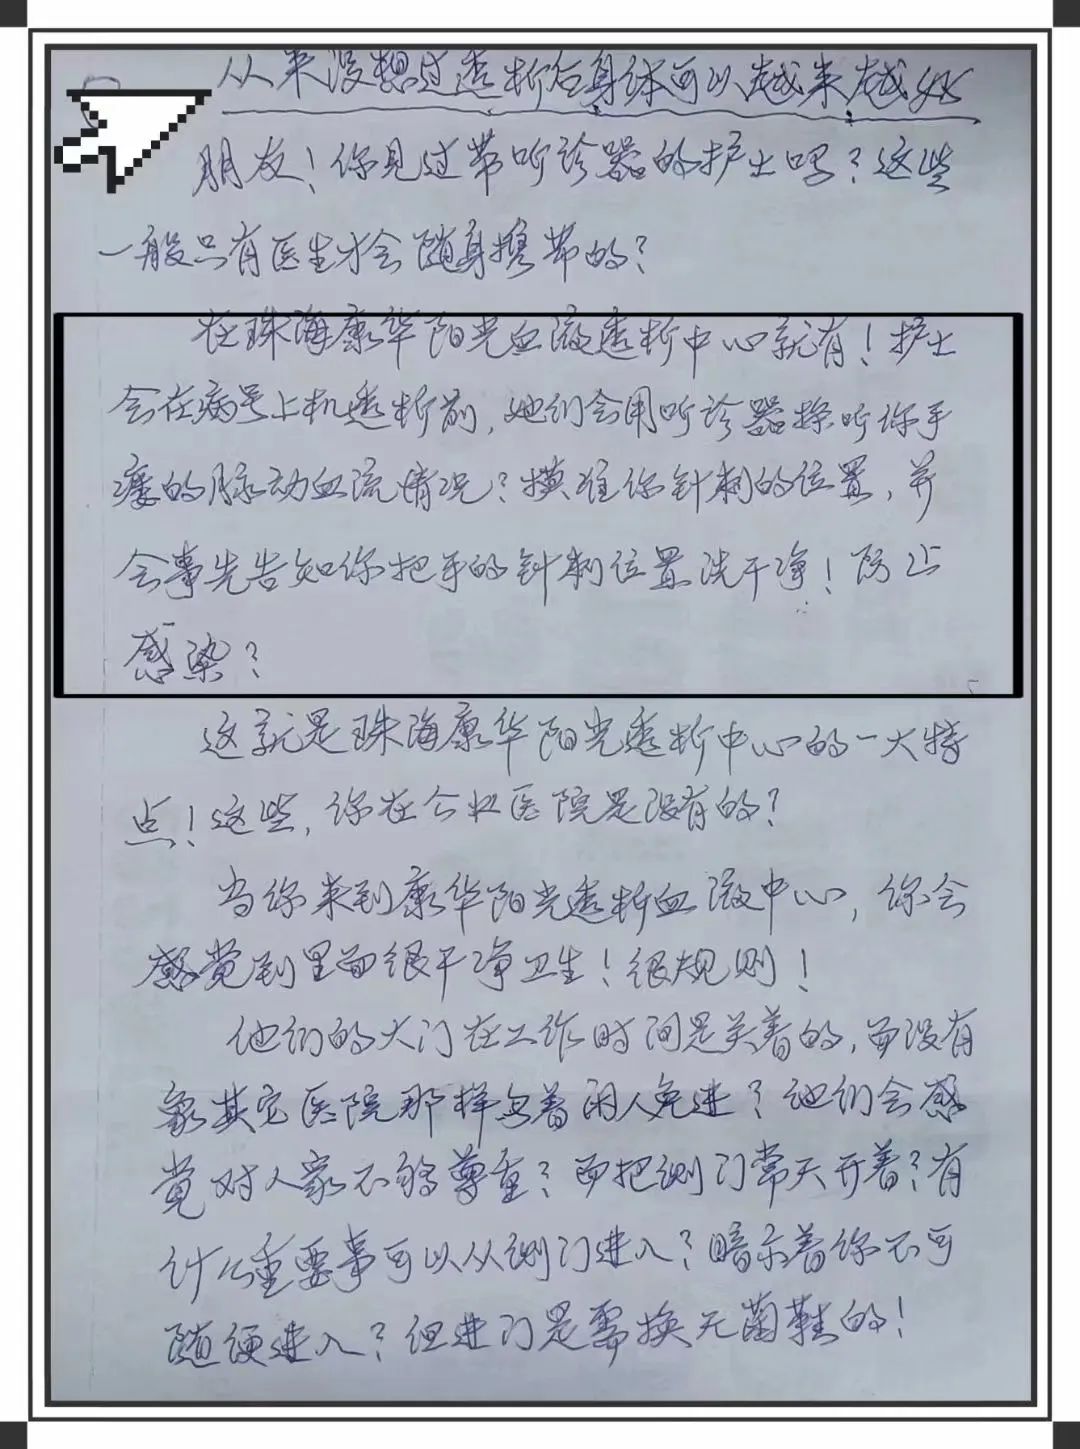 从来没想过透析后身体可以越来越好
朋友！你见过带听诊器的护士吗？这些
一般只有医生才会随身携带的？
在珠海康华阳光血液透析中心就有！护士
会在病号上机透析前，她们会用听诊器探听你手
瘘的脉动血流情况？摸准你针刺的位置，并
会事先告知你把手的针刺位置洗干净！防止
感染？
这就是珠海康华阳光透析中心的一大特
点！这些，你在公立医院是没有的？
当你来到康华阳光透析血液中心，你会
感觉到里面很干净卫生！很规则！
他们的大门在工作时间是关着的，而没有
象其它医院那样写着闲人免进？他们会感
觉对人家不够尊重？而把侧门常天开着？有
什么重要事可以从侧门进入？暗示着你不可
随便进入？但进门是需换无菌鞋的！